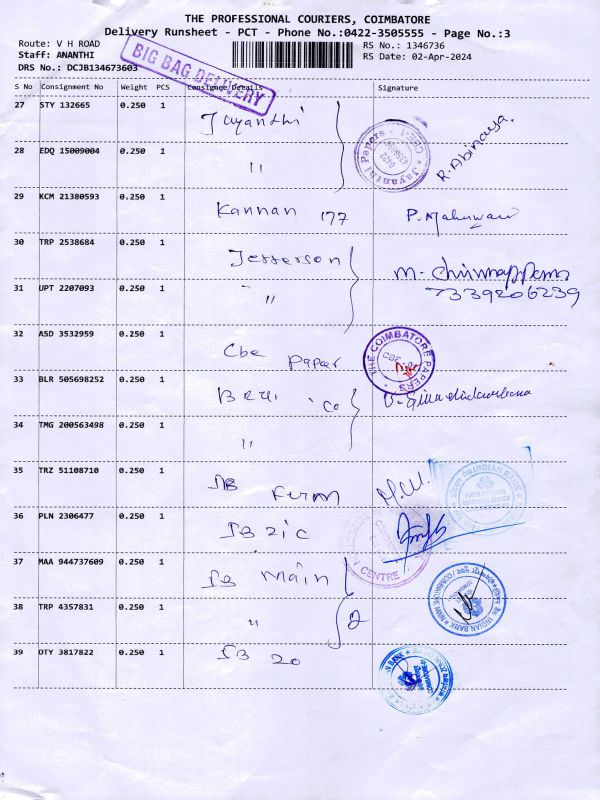 THE PROFESSIONAL COURIERS, COIMBATORE
Delivery Runsheet - PCT - Phone No.:0422-3505555 - Page No.:3
Route: V H ROAD
RS No.: 1346736
Staff: ANANTHI
RS Date: 02-Apr-2024
DRS No.: DCJB134673603
BIG BAG DELIVERY
S No Consignment No Weight PCS Consignee Details Signature
27 STY 132665 0.250 1 Jayanthi
Jayanthi Papers CBE-1
28 EDQ 15009004 0.250 1 "
R. Abinaya.
29 KCM 21380593 0.250 1 Kannan 177
30 TRP 2538684 0.250 1 Jefferson
31 UPT 2207093 0.250 1 "
7339206239
32 ASD 3532959 0.250 1 Cbe paper
THE COIMBATORE PAPERS
33 BLR 505698252 0.250 1
34 TMG 200563498 0.250 1 "
35 TRZ 51108710 0.250 1 IB
INDIAN BANK
36 PLN 2306477 0.250 1 IB ZIC
CENTRE
37 MAA 944737609 0.250 1 IB Main
INDIAN BANK
38 TRP 4357831 0.250 1 " 2
39 DTY 3817822 0.250 1 IB ZO